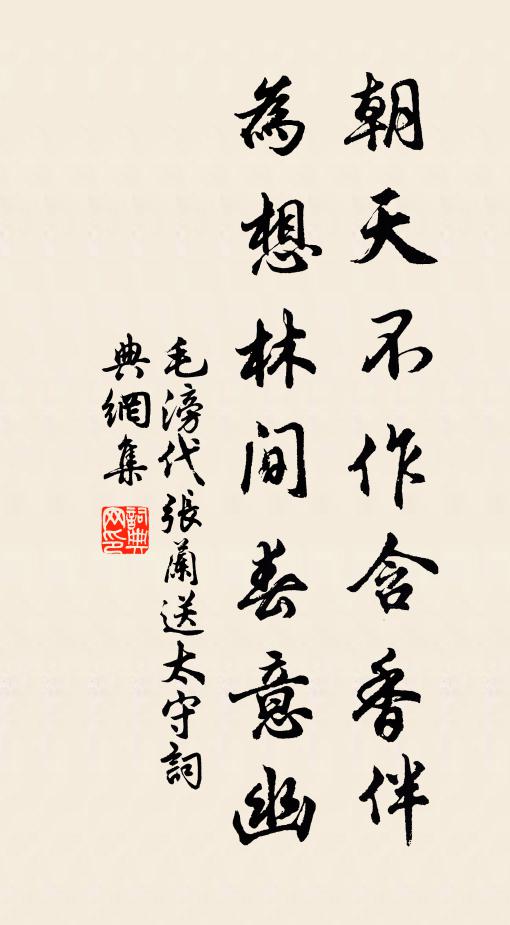 朝天不作含香伴
為想林間春意幽
毛滂代張蘭送太守詞
典網集
詞典
网印